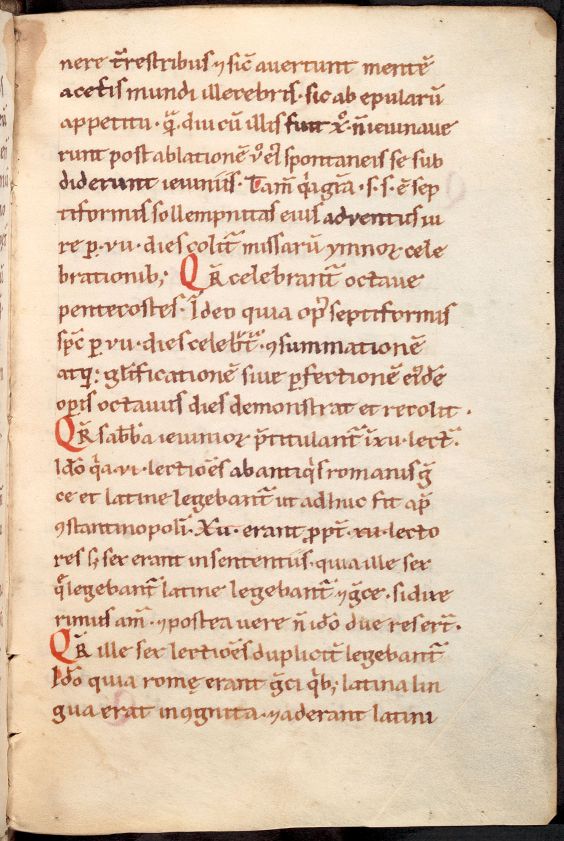 nere t̄restribus ⁊ sic̄ auertunt mentē
acetis mundi illecebris · sic ab epularū
appetitu · q̄ · diu cū illis fuit xp̄c · n̄ ieiunaue
runt post ablationē u͛ ei͛ spontaneis se sub
diderunt ieiuniis · Tam̄ q̄a gr̄a · s · s · ē sep
tiformis sollempnitas eius aduentus iu
re ꝑ · vii · dies colit᷑ missarū ymnoꝝ cele
brationib; Qr̄ celebrant᷑ octaue
pentecostes · Ideo quia op͛ septiformis
sp̄c ꝑ · vii · dies celebrat᷑ · ꝯsummationē
atq; glīficationē siue ꝑfectionē ei͛dē
oꝑis octauus dies demonstrat et recolit ·
Qr̄ sabb̄a ieiunioꝝ p̄titulant᷑ ī xii · lect̄ ·
Idō q̄a · vi · lectiōes ab antiq͛s romanis ḡ
ce et latine legebant᷑ ut adhuc fit ap̄
ꝯstantinopolī · Xii · erant ꝓpt̄ · xii · lecto
res s; sex erant in sententiis · quia ille sex
q̄ legebant᷑ latine legebant᷑ ⁊ ḡce · si dixe
rimus am̄ · ⁊ postea uere n̄ idō due resert᷑ ·
Qr̄ ille sex lectiōes duplicit̄ legebant᷑
Idō quia romę erant ḡci q͛b; latina lin
gua erat inꝯgnita · ⁊ aderant latini